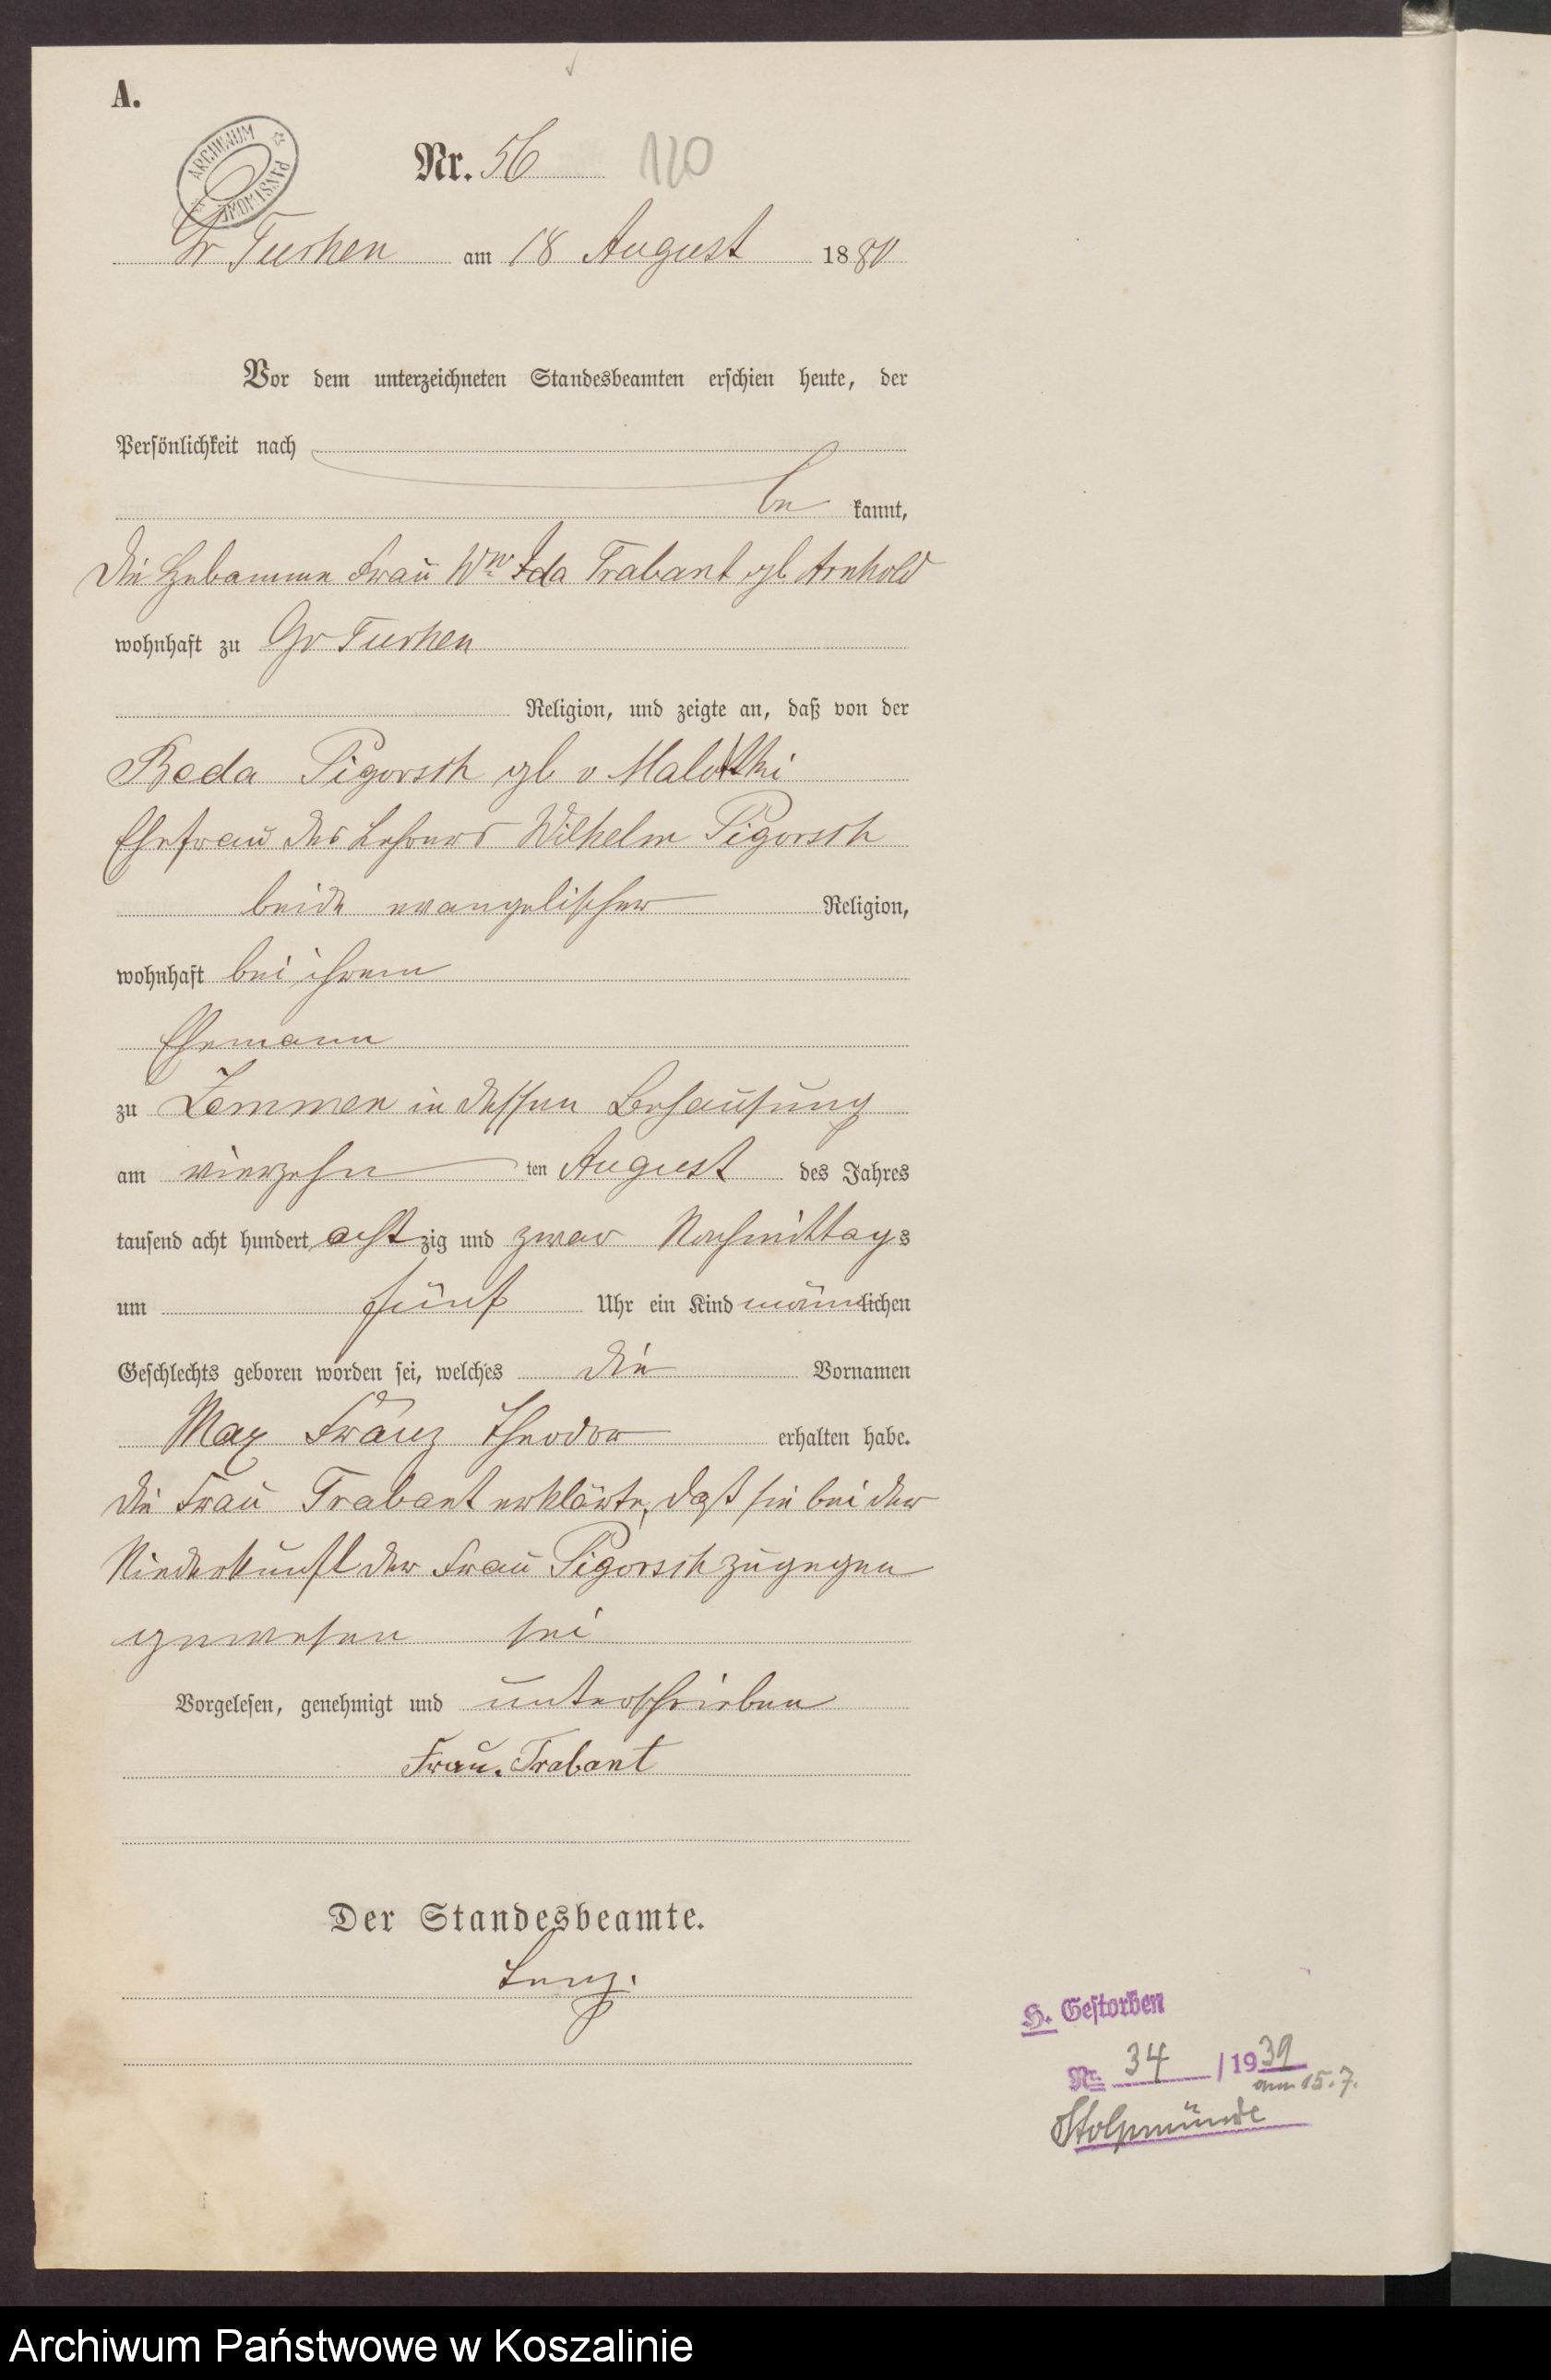 A.
ARCHIWUM PAŃSTWOWE
Nr. 56 120
Gr Tuchen am 18 August 1880
Vor dem unterzeichneten Standesbeamten erschien heute, der
Persönlichkeit nach
be kannt,
die Hebamme Frau Ww Ida Trabant gb Arnhold
wohnhaft zu Gr Tuchen
Religion, und zeigte an, daß von der
Pigorsch gb v Malottki
Ehefrau des Lehrers Wilhelm Pigorsch
beide evangelischer Religion,
wohnhaft bei ihrem
Ehemann
zu Zemmen in dessen Behausung
am vierzehn ten August des Jahres
tausend acht hundert acht zig und zwar Nachmittags
um fünf Uhr ein Kind männlichen
Geschlechts geboren worden sei, welches die Vornamen
Max Franz Theodor erhalten habe.
die Frau Trabant erklärte, daß sie bei der
Niederkunft der Frau Pigorsch zugegen
gewesen sei
Vorgelesen, genehmigt und unterschrieben
Frau. Trabant
Der Standesbeamte.
H. Gestorben
Nr. 34 / 1939
am 15.7.
Stolpmünde
Archiwum Państwowe w Koszalinie